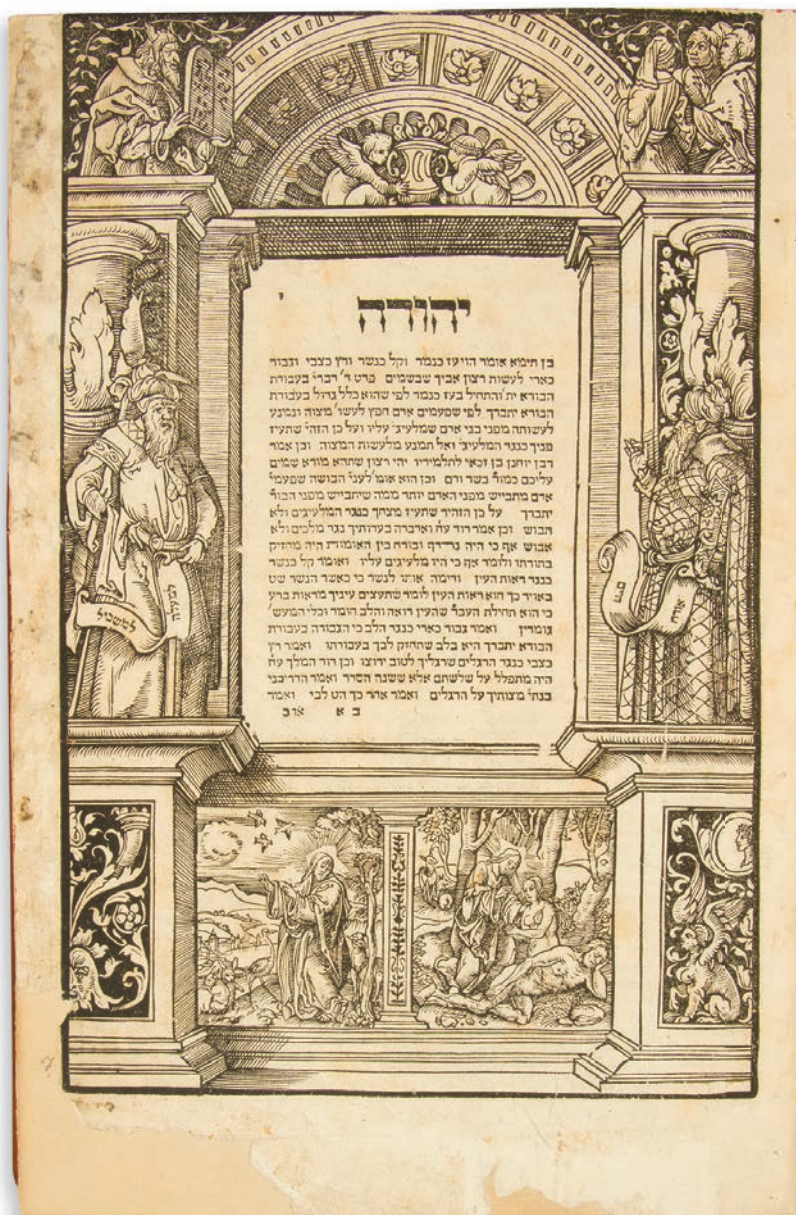 י
יהודה
בן תימא אומר הוי עז כנמר וקל כנשר ורץ כצבי וגבור
כארי לעשות רצון אביך שבשמים פרט ד' דברי' בעבודת
הבורא ית' והתחיל בעז כנמר לפי שהוא כלל גדול בעבודת
הבורא יתברך לפי שפעמים אדם חפץ לעשו' מצוה ונמנע
לעשותה מפני בני אדם שמלעיגי' עליו ועל כן הזהי' שתעיז
פניך כנגד המלעיגי' ואל תמנע מלעשות המצוה וכן אמר
רבן יוחנן בן זכאי לתלמידיו יהי רצון שתהא מורא שמים
עליכם כמור' בשר ודם וכן הוא אומ' לעני' הבושה שפעמי'
אדם מתבייש מפני האדם יותר ממה שיתבייש מפני הבור'
יתברך על כן הזהיר שתעיז מצחך כנגד המלעיגים ולא
תבוש וכן אמר דוד ע"ה ואדברה בעדותיך נגד מלכים ולא
אבוש אף כי היה נרדף ובורח בין האומות היה מחזיק
בתורתו ולומד אף כי היו מלעיגים עליו ואומר קל כנשר
כנגד ראות העין ודימה אותו לנשר כי כאשר הנשר שט
באויר כך הוא ראות העין לומר שתעצים עיניך מראות ברע
כי הוא תחילת העביר' שהעין רואה והלב חומד וכלי המעש'
גומרין ואמר גבור כארי כנגד הלב כי הגבורה בעבודת
הבורא יתברך היא בלב שתחזק לבך בעבודתו ואמר רץ
כצבי כנגד הרגלים שרגליך לטוב ירוצו וכן דוד המלך ע"ה
היה מתפלל על שלשתם אלא ששנה הסדר ואמר הדריכני
בנתי' מצותיך על הרגלים ואמר אחר כך הט לבי ואמר
ב א
חיים
למעלה
למשכיל
7